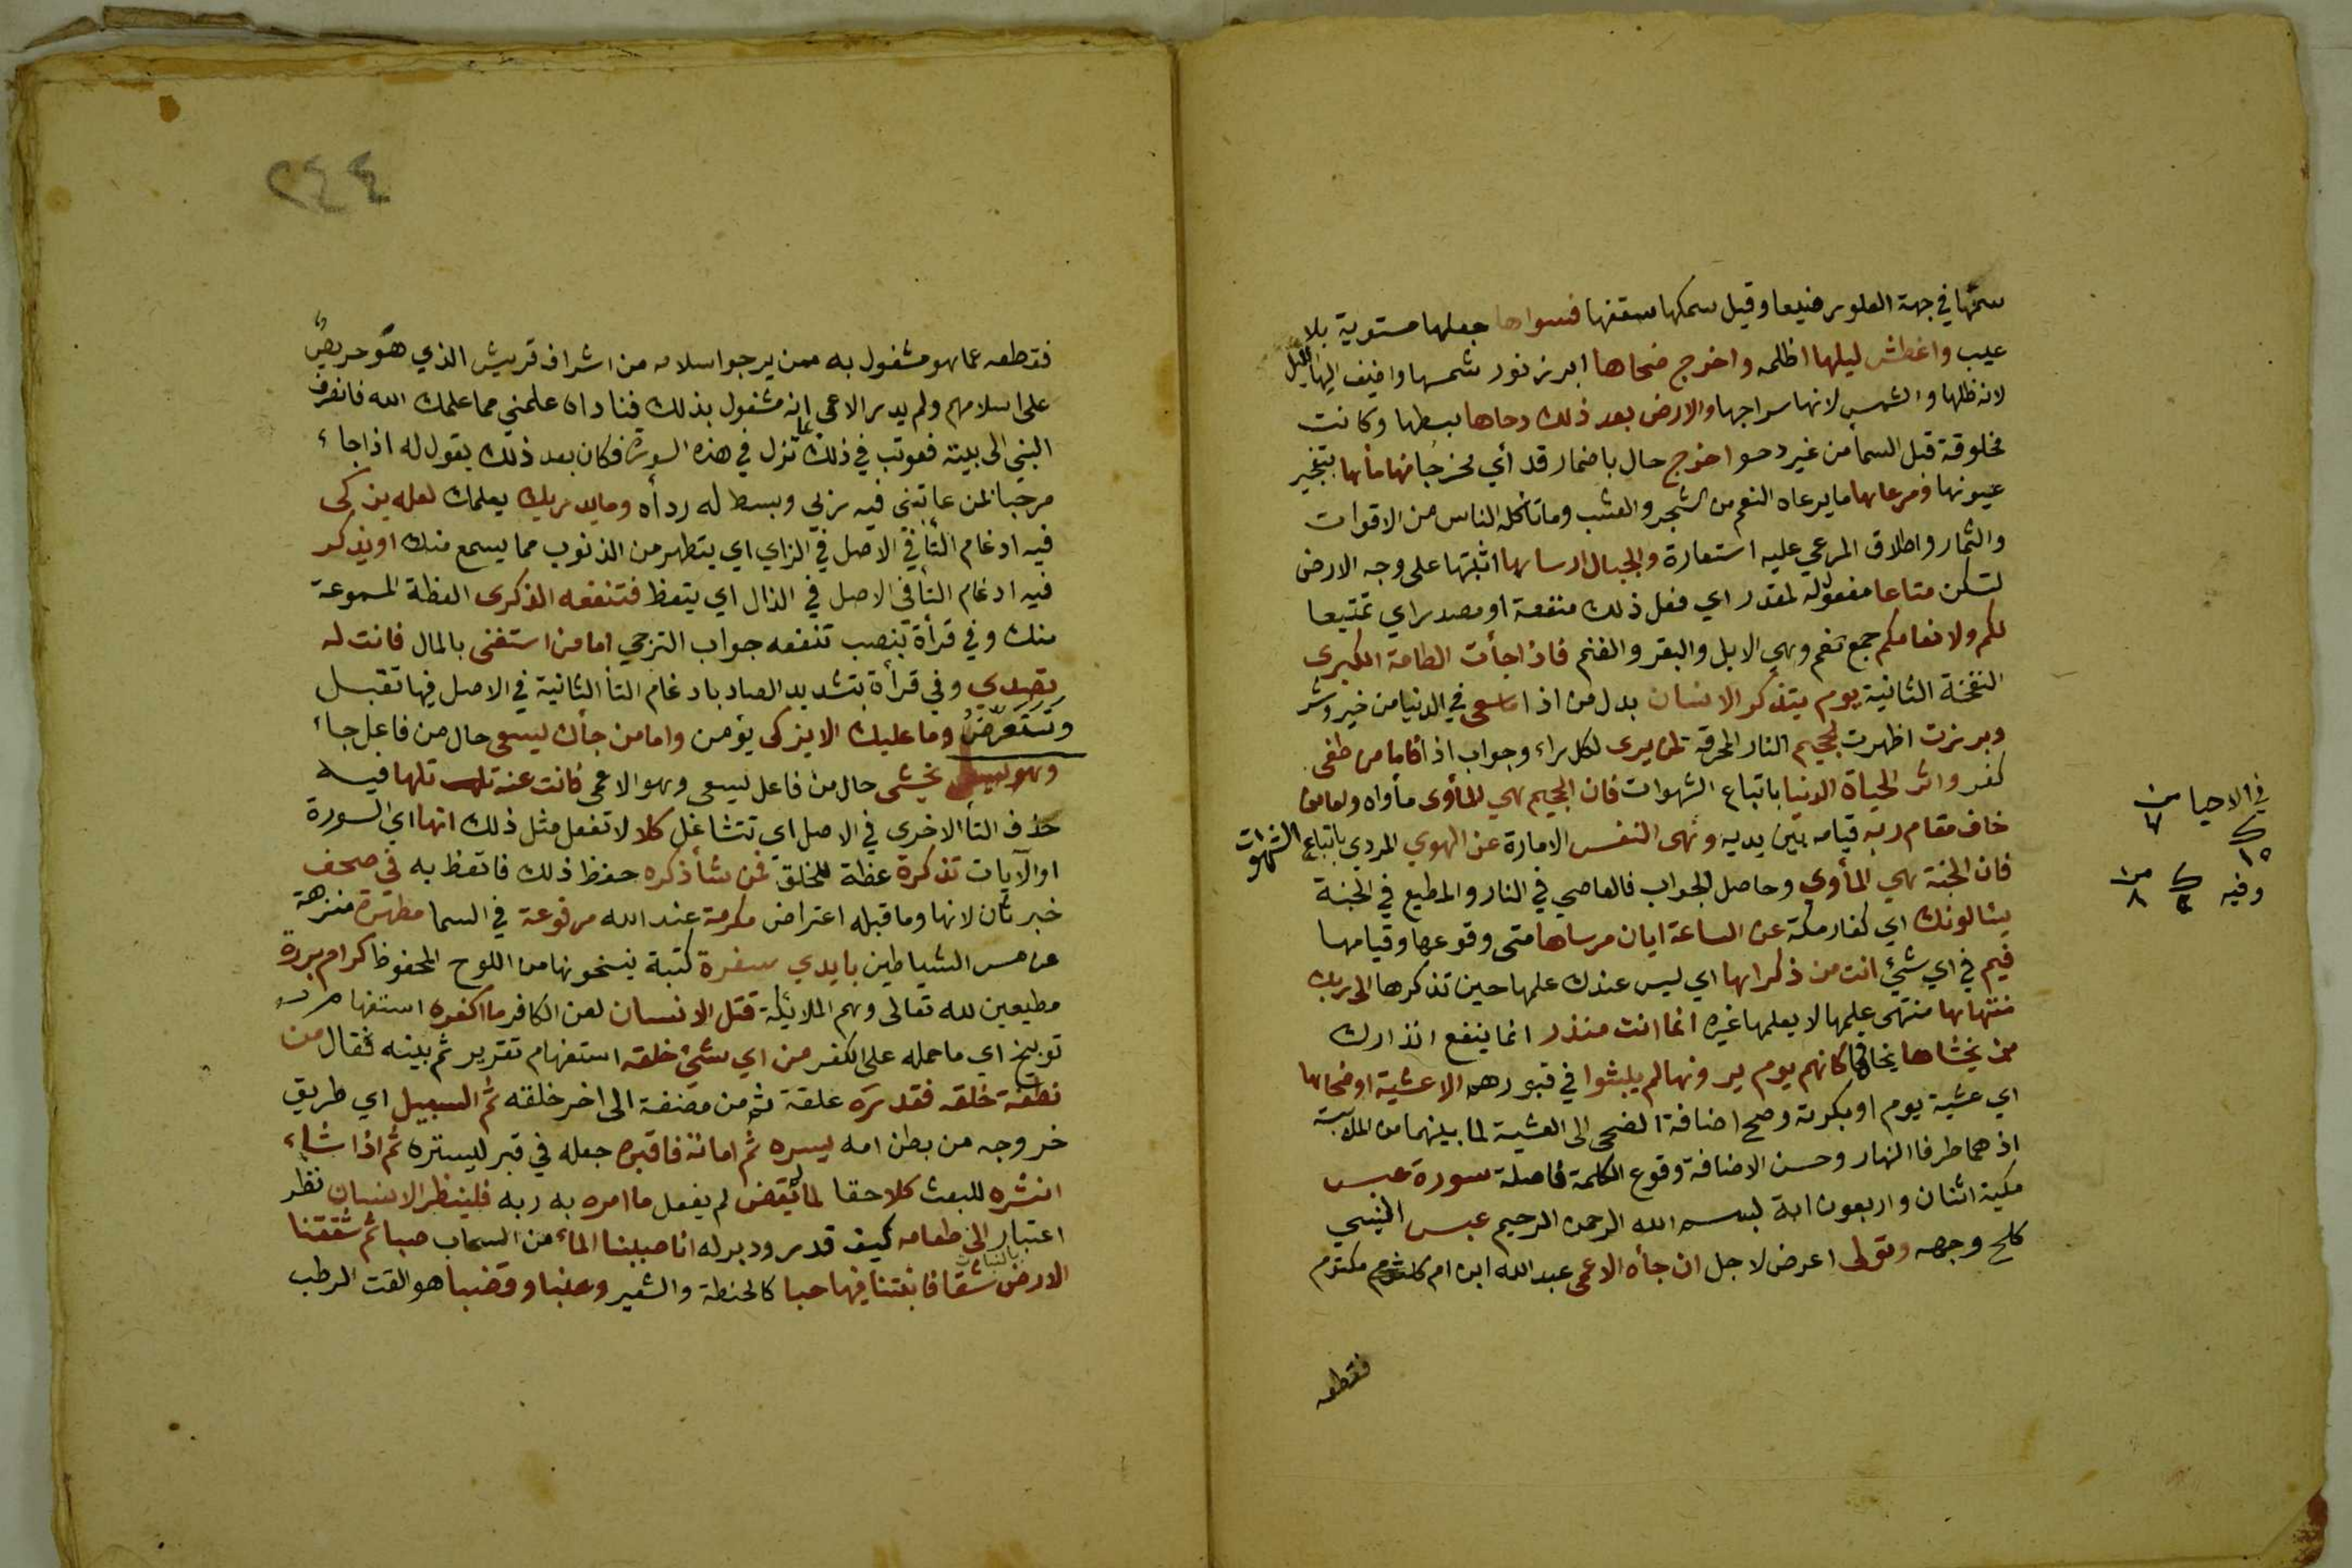 سمتها في جهة العلو رفيعا وقيل سمكها سقفها فسواها جعلها مستوية بلا
عيب واغطش ليلها اظلمه واخرج ضحاها ابرز نور شمسها واضيف اليها الليل
لانه ظلها والشمس لانها سراجها والارض بعد ذلك دحاها بسطها وكانت
مخلوقة قبل السمأ من غير دحو اخرج حال باضمار قد أي مخرجا منها مأها بتجير
عيونها ومرعاها ما يرعاه النعم من الشجر والعشب وما تأكله الناس من الاقوات
والثمار واطلاق المرعي عليه استعارة والجبال ارساها اثبتها على وجه الارض
لتسكن متاعا مفعول له لمقدر اي فعل ذلك منفعة او مصدر اي تمتيعا
لكم ولانعامكم جمع نعم وهي الابل والبقر والغنم فاذا جأت الطامة الكبرى
النفخة الثانية يوم يتذكر الانسان بدل من اذا ما سعى في الدنيا من خير وشر
وبرزت اظهرت الجحيم النار المحرقة لمن يرى لكل راء وجواب اذا فاما من طغى
كفر واثر الحياة الدنيا باتباع الشهوات فان الجحيم هي المأوى مأواه واما من
خاف مقام ربه قيامه بين يديه ونهى النفس الامارة عن الهوي المردي باتباع الشهوات
فان الجنة هي المأوي وحاصل الجواب فالعاصي في النار والمطيع في الجنة
يسألونك اي كفار مكة عن الساعة ايان مرساها متى وقوعها وقيامها
فيم في اي شئ انت من ذكراها اي ليس عندك علمها حين تذكرها الى ربك
منتهاها منتهى علمها لا يعلمها غيره انما انت منذر انما ينفع انذارك
من يخشاها يخافها كانهم يوم يرونها لم يلبثوا في قبورهم الا عشية او ضحاها
اي عشية يوم او بكرته وصح اضافة الضحى الى العشية لما بينهما من الملابسة
اذ هما طرفا النهار وحسن الاضافة وقوع الكلمة فاصلة سورة عبس
مكية اثنان واربعون اية بسم الله الرحمن الرحيم عبس النبي
كلح وجهه وتولى اعرض لاجل ان جأه الاعمى عبد الله ابن ام مكتوم
فقطعه
في الاحيا من
وفيه
٢٤٤
فقطعه عما هو مشغول به ممن يرجو اسلامه من اشراف قريش الذي هو حريص
على اسلامهم ولم يدر الاعمى انه مشغول بذلك فناداه علمني مما علمك الله فانصرف
النبي الى بيته فعوتب في ذلك بما نزل في هذه السورة فكان بعد ذلك يقول له اذا جاء
مرحبا لمن عاتبني فيه ربي وبسط له ردأه وما يدريك يعلمك لعله يزكى
فيه ادغام التأ في الاصل في الزاي اي يتطهر من الذنوب مما يسمع منك او يذكر
فيه ادغام التأ في الاصل في الذال اي يتعظ فتنفعه الذكرى العظة المسموعة
منك وفي قرأة بنصب تنفعه جواب الترجي اما من استغنى بالمال فانت له
تصدي وفي قرأة بتشديد الصاد بادغام التأ الثانية في الاصل فيها تقبل
وتتعرض وما عليك الا يزكى يؤمن واما من جأك يسعى حال من فاعل جاء
وهو يخشى حال من فاعل يسعى وهو الاعمى فانت عنه تلهى فيه
حذف التأ الاخرى في الاصل اي تتشاغل كلا لا تفعل مثل ذلك انها اي السورة
او الآيات تذكرة عظة للخلق فمن شأ ذكره حفظ ذلك فاتعظ به في صحف
خبر ثان لانها وما قبله اعتراض مكرمة عند الله مرفوعة في السما مطهرة منزهة
عن مس الشياطين بايدي سفرة كتبة ينسخونها من اللوح المحفوظ كرام بررة
مطيعين لله تعالى وهم الملائكة قتل الانسان لعن الكافر ما اكفره استفهام
توبيخ اي ما حمله على الكفر من اي شئ خلقه استفهام تقرير ثم بينه فقال من
نطفة خلقه فقدره علقة ثم من مضغة الى اخر خلقه ثم السبيل اي طريق
خروجه من بطن امه يسره ثم اماته فاقبره جعله في قبر ليستره ثم اذا شاء
انشره للبعث كلا حقا لما يقض لم يفعل ما امره به ربه فلينظر الانسان نظر
اعتبار الى طعامه كيف قدر ودبر له انا صببنا الماء من السحاب صبا ثم شققنا
الارض بالنبات شقا فانبتنا فيها حبا كالحنطة والشعير وعنبا وقضبا هو القت الرطب